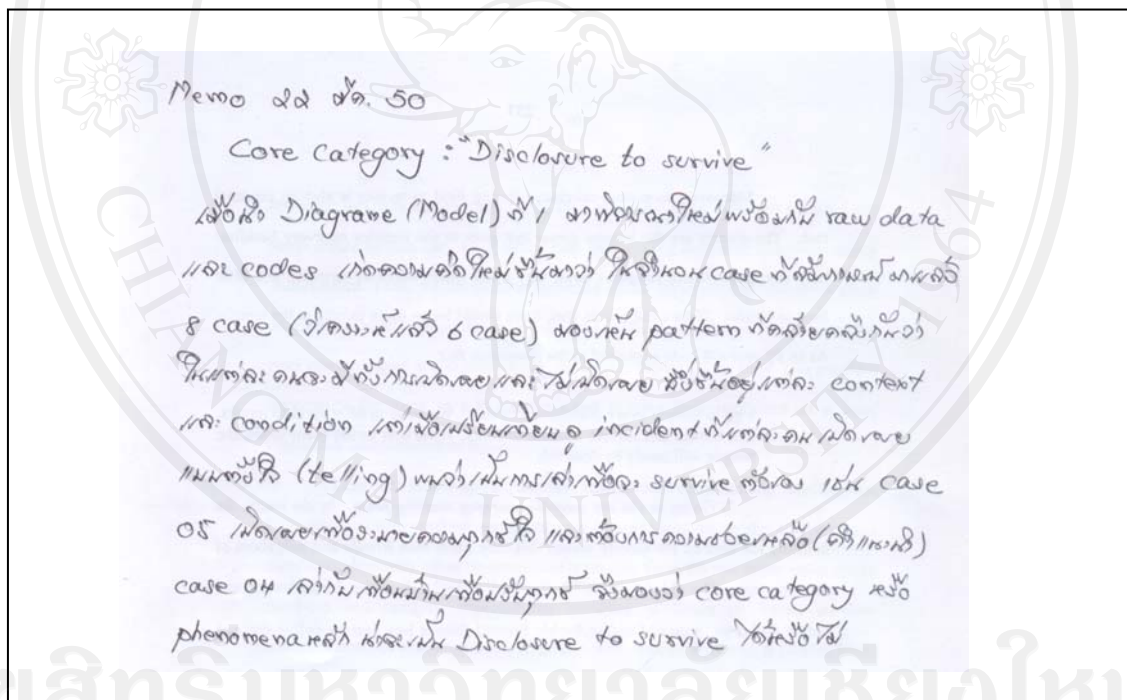 Memo ๒๒ มีค. 50
Core Category : "Disclosure to survive"
เมื่อนำ Diagrame (Model) ที่ 1 มาพิจารณาใหม่พร้อมกับ raw data
และ codes เกิดความคิดใหม่ขึ้นมาว่า ในจำนวน case ที่สัมภาษณ์มาแล้ว
8 case (วิเคราะห์แล้ว 6 case) มองเห็น pattern ที่คล้ายคลึงกันว่า
ในแต่ละคนจะมีทั้งการเปิดเผยและไม่เปิดเผย ซึ่งขึ้นอยู่แต่ละ context
และ condition แต่เมื่อเปรียบเทียบดู incident ที่แต่ละคนเปิดเผย
แบบตั้งใจ (telling) พบว่าเป็นการเล่าเพื่อจะ survive ตัวเอง เช่น case
05 เปิดเผยเพื่อระบายความทุกข์ใจ และต้องการความช่วยเหลือ (คำแนะนำ)
case 04 เล่ากับเพื่อนบ้านเพื่อปรับทุกข์ จึงมองว่า core category หรือ
phenomena หลัก น่าจะเป็น Disclosure to survive ได้หรือไม่
CHIANG MAI UNIVERSITY 1964
ลิขสิทธิ์มหาวิทยาลัยเชียงใหม่